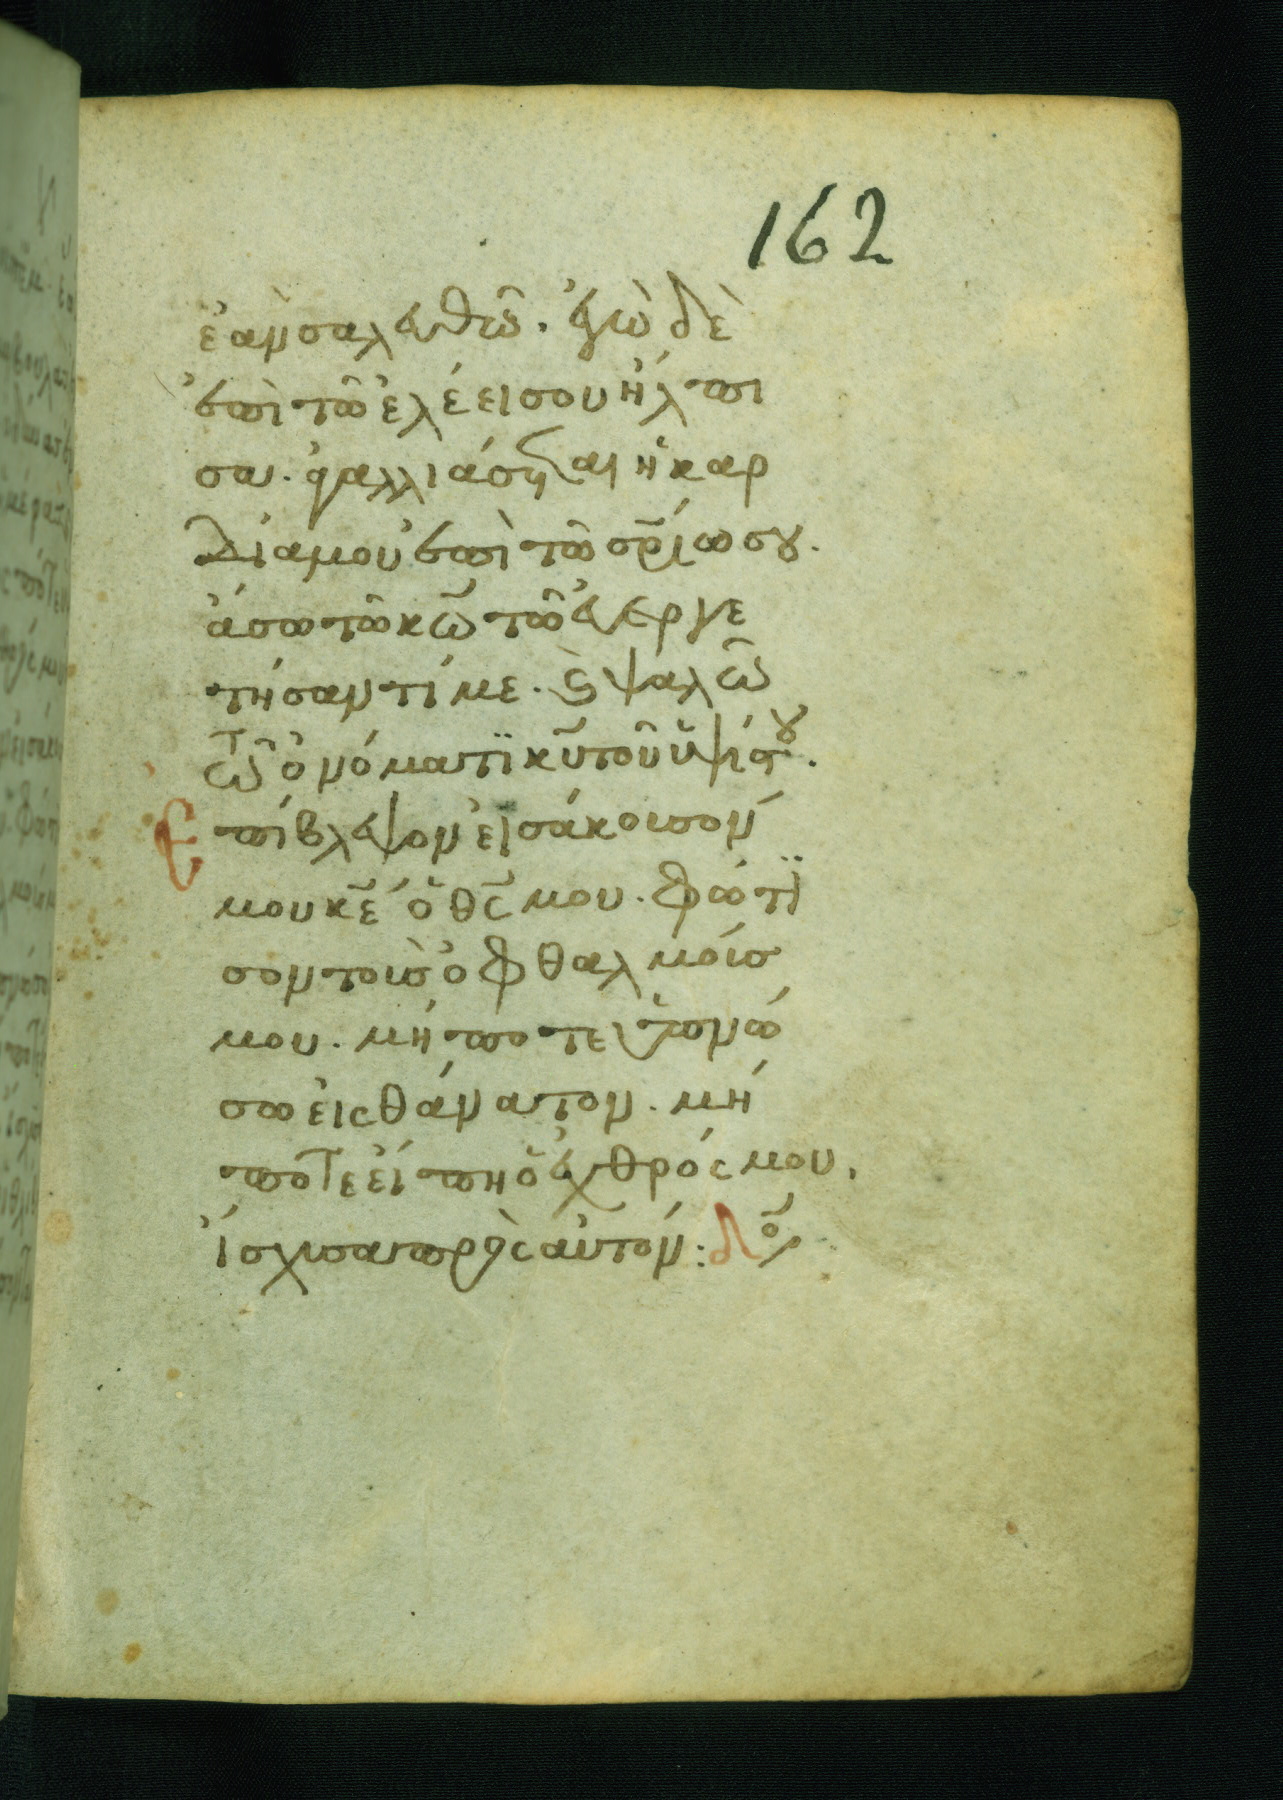 162
ἐὰν σαλευθῶ. ἐγὼ δὲ
ἐπὶ τῶ ἐλέει σου ἤλπι
σα. ἀγαλλιάσεται ἡ καρ
δία μου ἐπὶ τῶ σρίω σου.
ἄσω τῶ κω τῶ εὐεργε
τήσαντί με. καὶ ψαλῶ
τῶ ὀνόματι κυ τοῦ ὑψίστου.
Ἐπίβλεψον εἰσάκουσόν
μου κε ὁ θς μου. φώτι
σον τοὺς ὀφθαλμούς
μου. μήποτε ὑπνώ
σω εἰς θάνατον. μή
ποτε εἴπη ὁ ἐχθρός μου.
ἴσχυσα πρὸς αὐτόν: δο